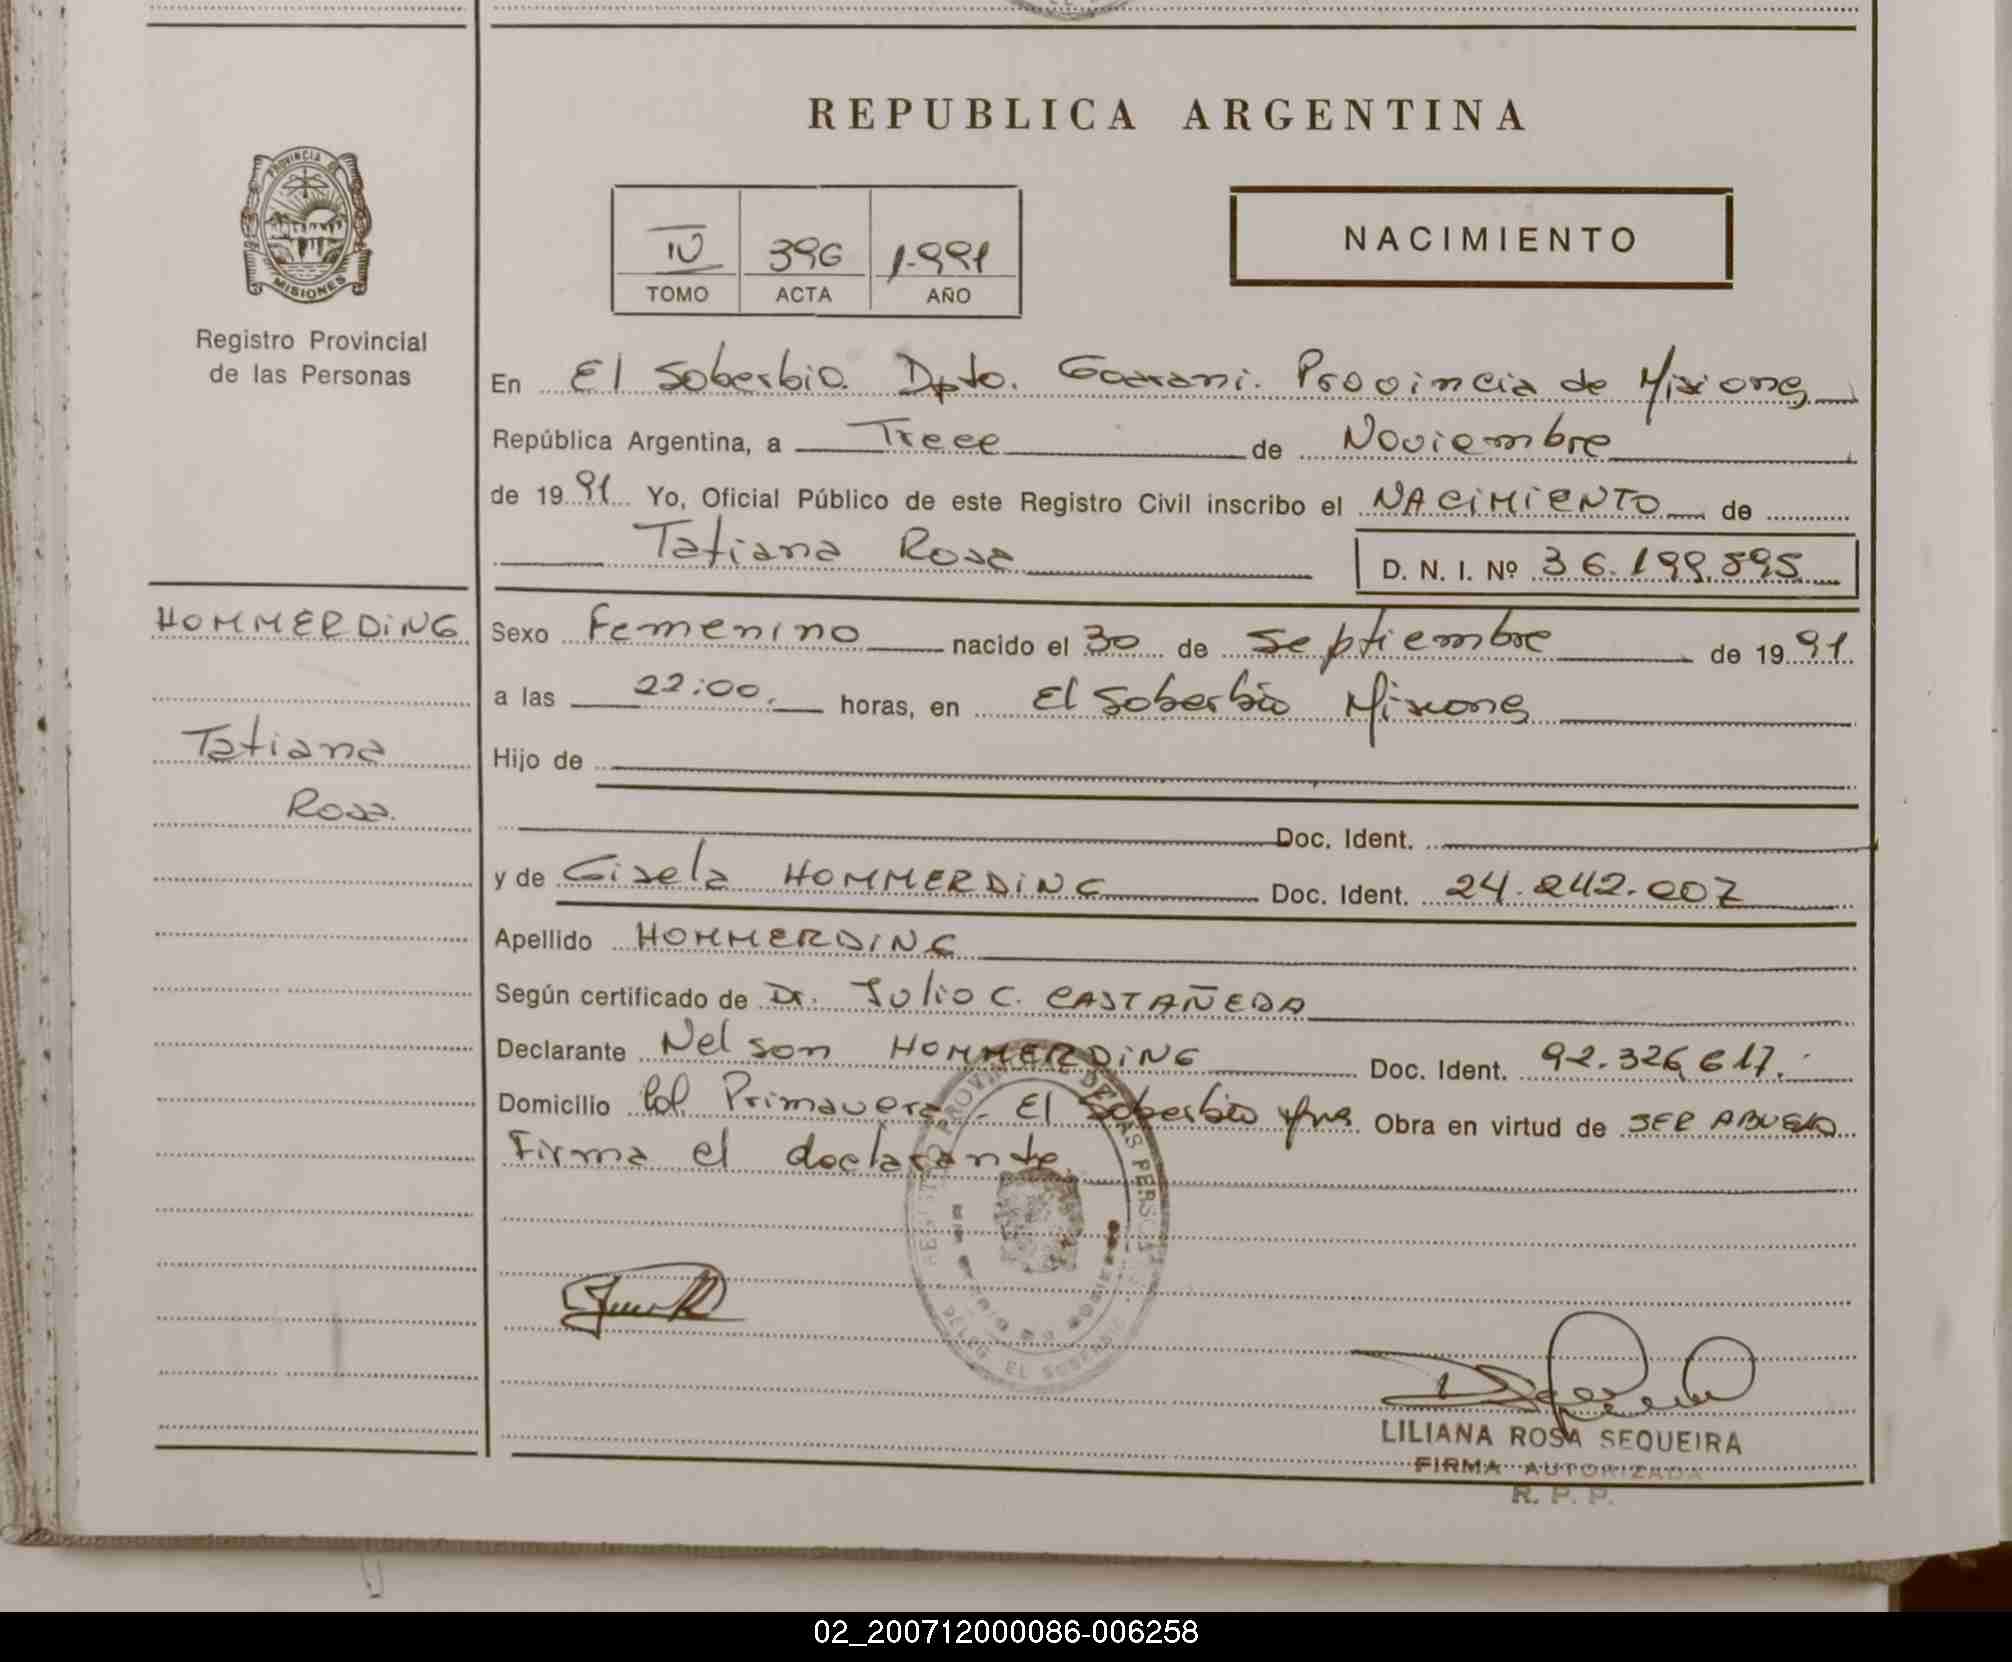 REPUBLICA ARGENTINA
PROVINCIA DE
MISIONES
Registro Provincial
de las Personas
IV 396 1.991
TOMO ACTA AÑO
NACIMIENTO
En El Soberbio. Dpto. Guarani. Provincia de Misiones
República Argentina, a Trece de Noviembre
de 1991 Yo, Oficial Público de este Registro Civil inscribo el NACIMIENTO de
Tatiana Rosa D. N. I. Nº 36.199.895
HOMMERDING
Tatiana
Rosa.
Sexo Femenino nacido el 30 de Septiembre de 1991
a las 22:00. horas, en El Soberbio Misiones
Hijo de
Doc. Ident.
y de Gisela HOMMERDING Doc. Ident. 24.242.007
Apellido HOMMERDING
Según certificado de Dr. Julio C. CASTAÑEDA
Declarante Nelson HOMMERDING Doc. Ident. 92.326.617.
Domicilio Col. Primavera - El Soberbio Mnes Obra en virtud de SER ABUELO
Firma el declarante.
REGISTRO PROVINCIAL DE LAS PERSONAS
DELEG. EL SOBERBIO
LILIANA ROSA SEQUEIRA
FIRMA AUTORIZADA
R. P. P.
02_200712000086-006258